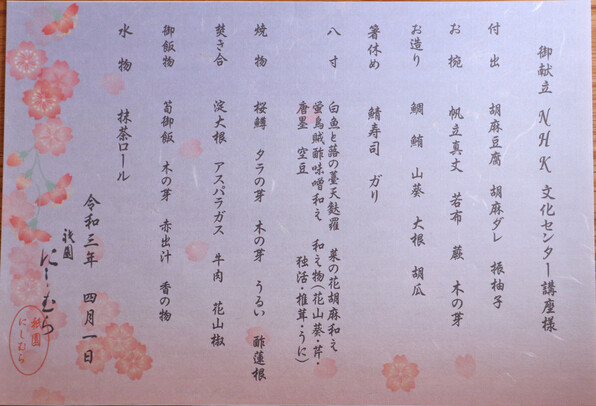 御献立 NHK 文化センター講座様
付出 胡麻豆腐 胡麻ダレ 振柚子
お椀 帆立真丈 若布 蕨 木の芽
お造り 鯛 鮪 山葵 大根 胡瓜
箸休め 鯖寿司 ガリ
八寸 白魚と蕗の薹天麩羅 菜の花胡麻和え
蛍烏賊酢味噌和え 和え物(花山葵・芹・
唐墨 空豆 独活・椎茸・うに)
焼物 桜鱒 タラの芽 木の芽 うるい 酢蓮根
焚き合 淀大根 アスパラガス 牛肉 花山椒
御飯物 筍御飯 木の芽 赤出汁 香の物
水物 抹茶ロール
令和三年 四月一日
祇園 にしむら
祇園
にしむら